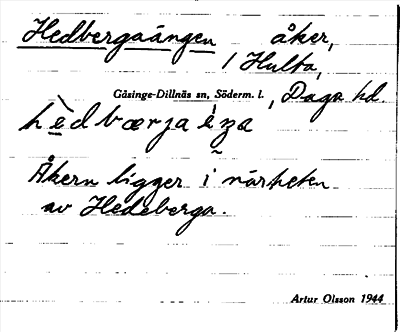 Hedbergaängen åker,
/ Hulta,
Gåsinge-Dillnäs sn, Söderm. l., Daga hd.
Åkern ligger i närheten
av Hedeberga.
Artur Olsson 1944